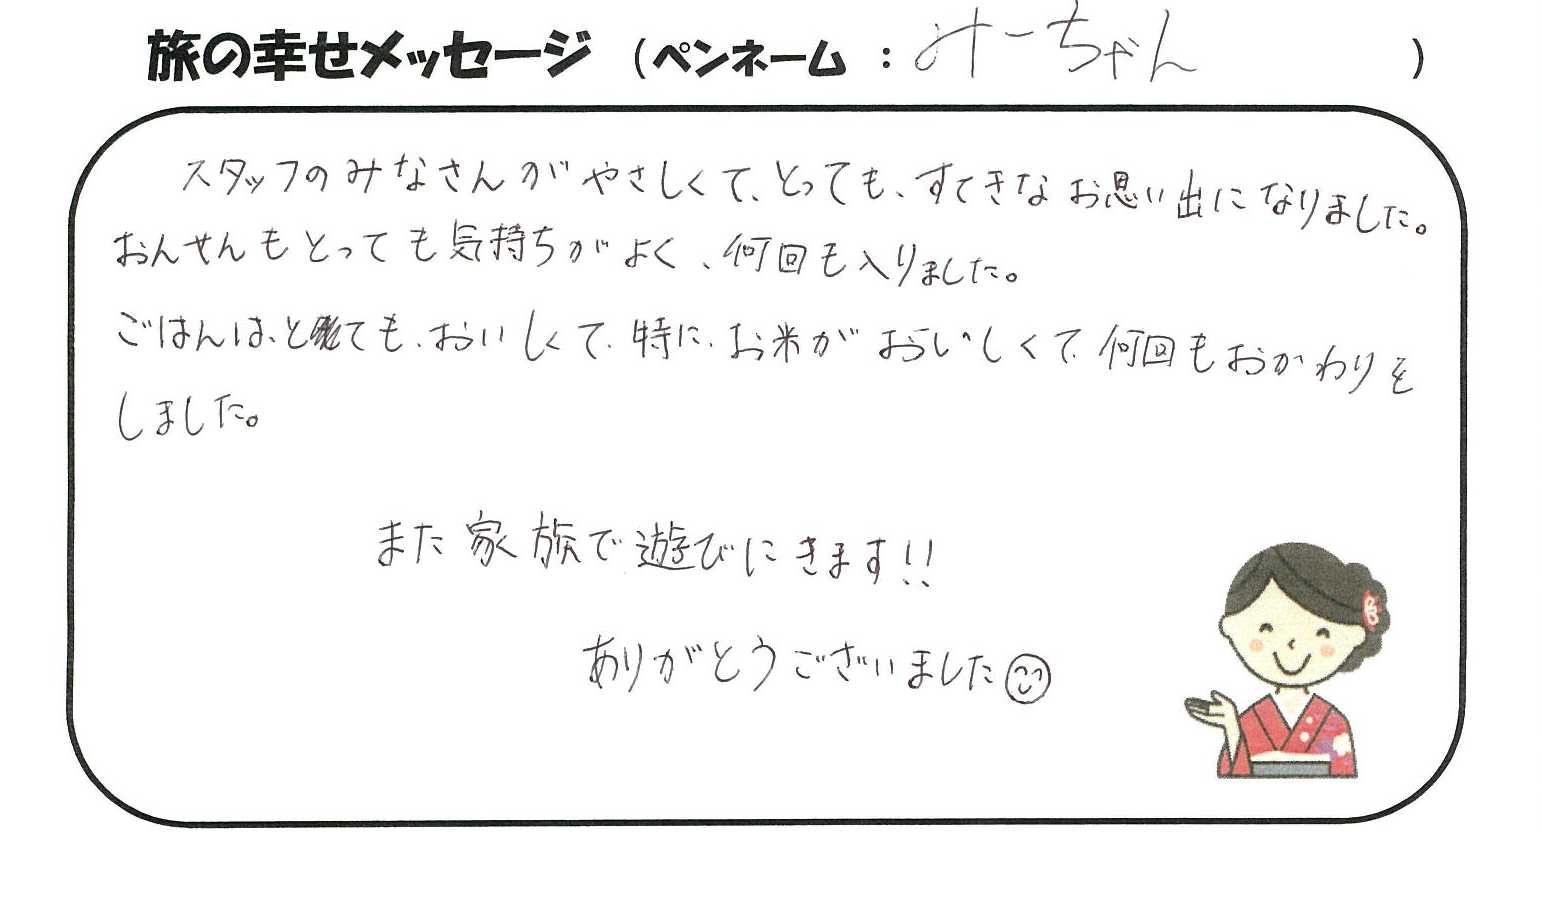 旅の幸せメッセージ（ペンネーム：みーちゃん）
スタッフのみなさんがやさしくて、とっても、すてきなお思い出になりました。
おんせんもとっても気持ちがよく、何回も入りました。
ごはんは、とても、おいしくて、特に、お米がおいしくて、何回もおかわりを
しました。
また家族で遊びにきます!!
ありがとうございました